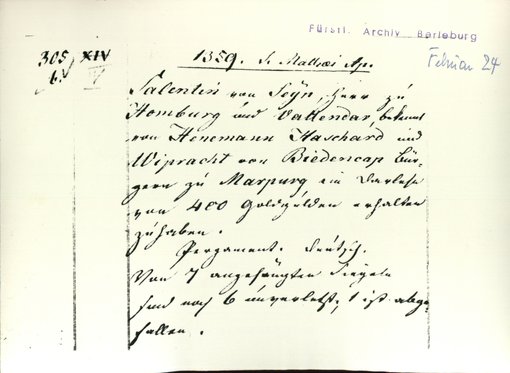 Fürstl. Archiv Berleburg
Februar 24
305 XIV
1359. S. Mathiæ Ap.
Salentin von Seyn, Herr zu
Homburg und Vallendar, bekennt
von Henemann Haschard und
Wipracht von Biedencap Bür-
gern zu Marpurg ein Darlehn
von 400 Goldgülden erhalten
zu haben.
Pergament. deutsch.
Von 7 angehängten Siegeln
sind noch 6 unverletzt, 1 ist abge-
fallen.